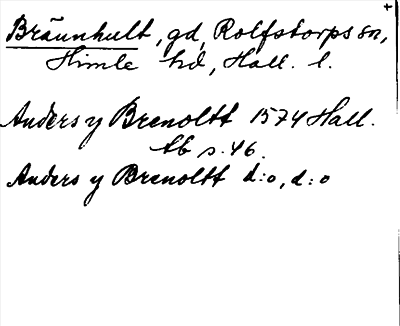 Bräunhult, gd, Rolfstorps sn,
Himle hd, Hall. l.
Anders y Brenoltt 1574 Hall.
tb s. 46.
Anders y Brenoltt d:o, d:o